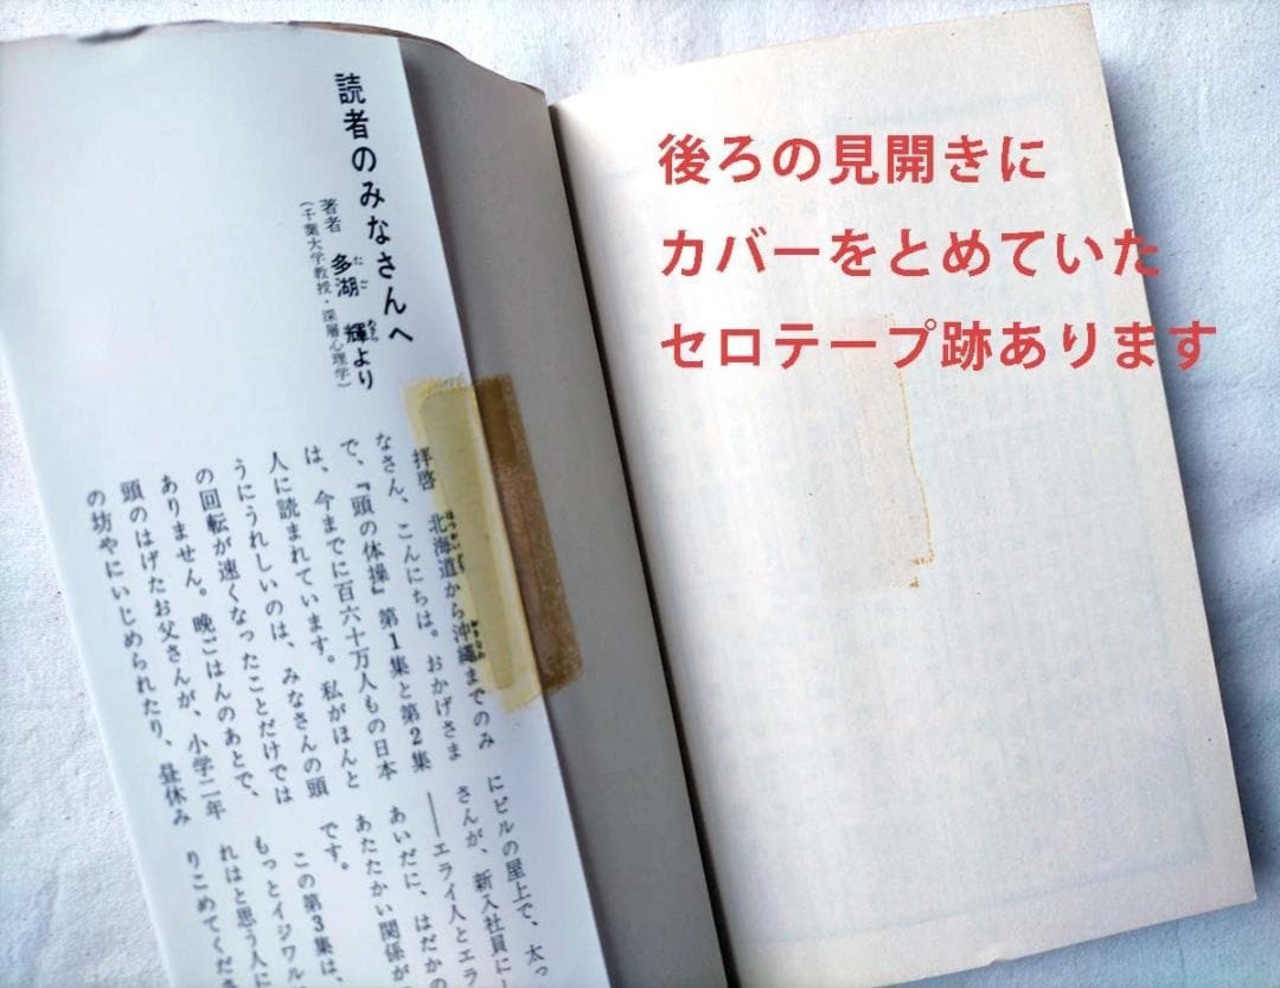 読者のみなさんへ
著者 多湖 輝より
たご
あきら
（千葉大学教授・深層心理学）
拝啓 北海道から沖縄までのみ
ほっかいどう
おきなわ
なさん、こんにちは。おかげさま
で、『頭の体操』第1集と第2集
は、今までに百六十万人もの日本
人に読まれています。私がほんと
うにうれしいのは、みなさんの頭
の回転が速くなったことだけでは
ありません。晩ごはんのあとで、
頭のはげたお父さんが、小学二年
の坊やにいじめられたり、昼休み
にビルの屋上で、太っ
さんが、新入社員にし
――エライ人とエラ
あいだに、はだかの
あたたかい関係が
です。
この第3集は、
もっとイジワル
れはと思う人に
りこめてくださ
後ろの見開きに
カバーをとめていた
セロテープ跡あります